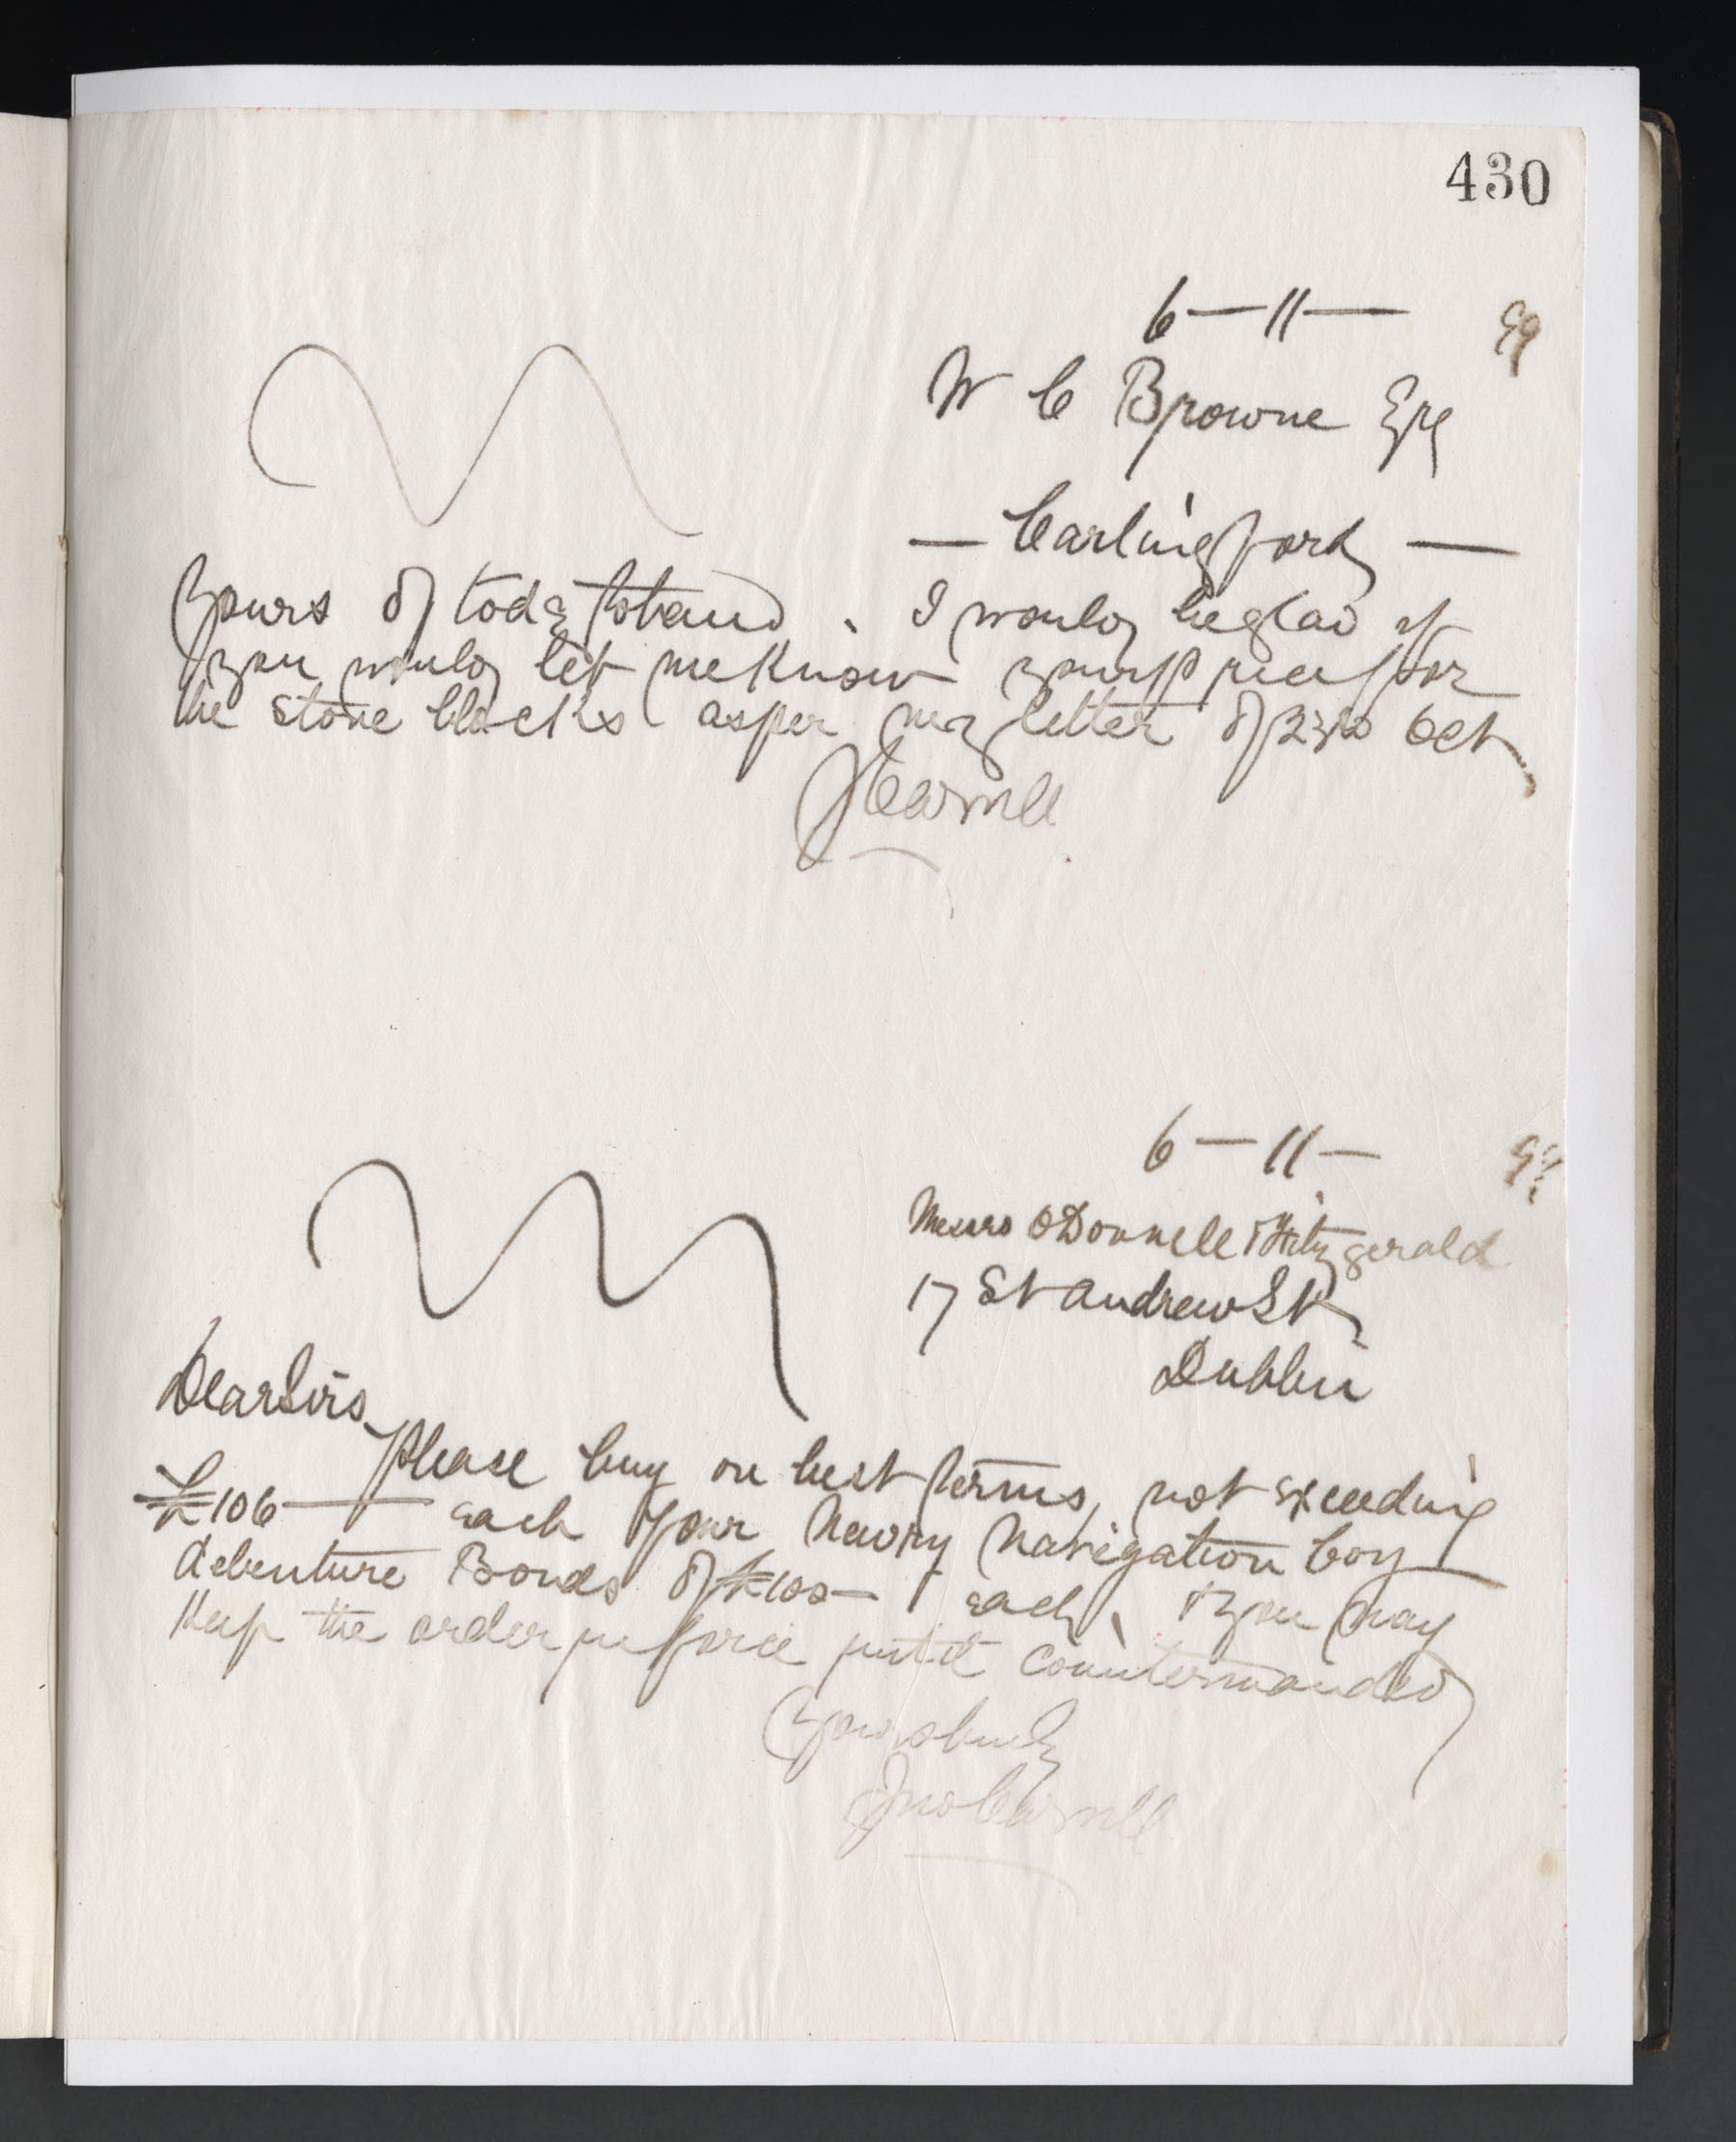 430
6 — 11 — 99
W C Browne Esq
— Carlingford —
Yours of today to hand. I would be glad if
you would let me know your price for
the stone blocks as per my letter of 23rd Oct
6 — 11 — 99
Messrs O'Donnell & Fitzgerald
17 St Andrew St
Dublin
Dear Sirs
Please buy on best terms, not exceeding
£106 — each four Newry Navigation Coy
debenture Bonds of £100 — each, & you may
keep the order in force until countermanded
Yours truly